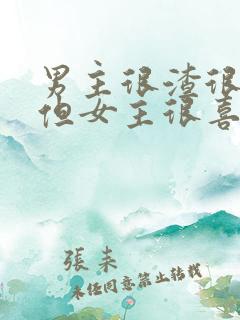 男主很渣很
但女主很喜
張未
未经同意禁止转载